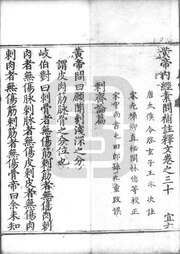 黃帝內經素問補註釋文卷之三十　宜六
唐太僕令啓玄子王冰次註
宋光祿卿直祕閣林億等校正
宋守尚書屯田郎孫兆重改誤
刺齊論篇
黃帝問曰願聞刺淺深之分
謂皮肉筋脉骨之分位也
岐伯對曰刺骨者無傷筋刺筋者無傷肉刺
肉者無傷脉刺脉者無傷皮刺皮者無傷肉
刺肉者無傷筋刺筋者無傷骨帝曰余未知